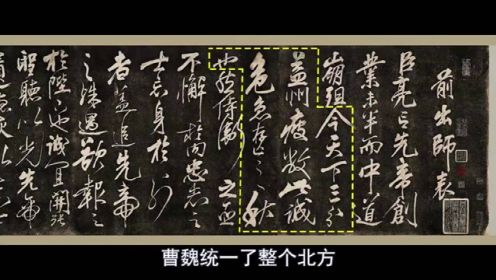 前出師表
臣亮言先帝創
業未半而中道
崩殂今天下三分
益州疲敝此誠
危急存亡之秋
也然侍衛之臣
不懈於内忠志之
士忘身於外
者蓋追先帝
之殊遇欲報之
於陛下也誠宜開張
聖聽以光先帝
曹魏统一了整个北方